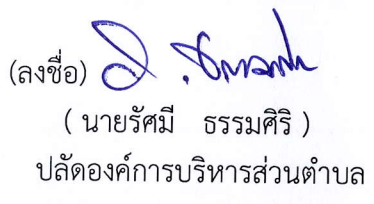 (ลงชื่อ)
( นายรัศมี ธรรมศิริ )
ปลัดองค์การบริหารส่วนตำบล